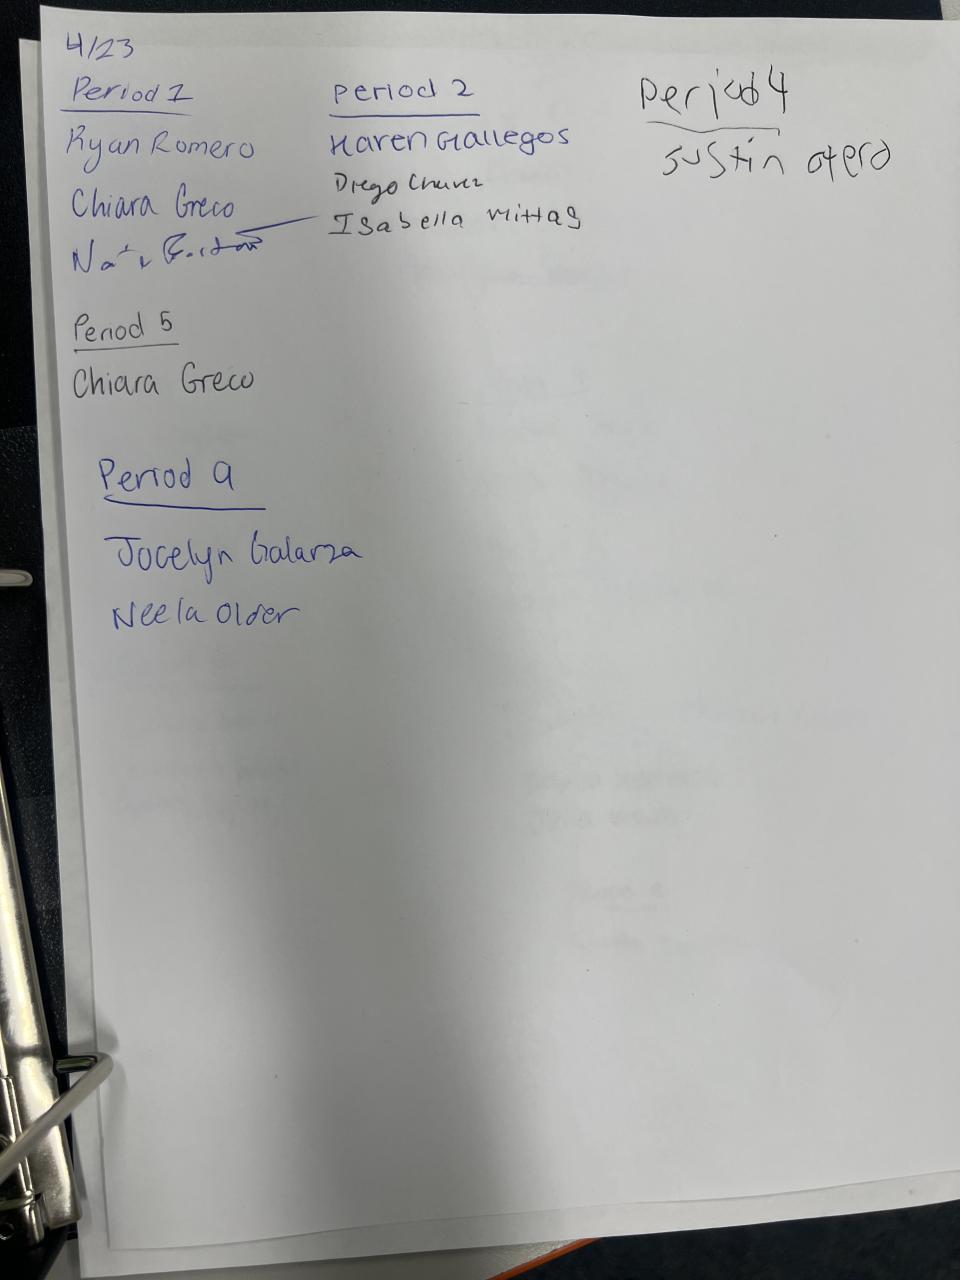 4/23
Period 1
Ryan Romero
Chiara Greco
Period 2
Karen Gallegos
Diego Chavez
Isabella Mittas
Period 4
Justin otero
Period 5
Chiara Greco
Period 9
Jocelyn Galarza
Neela Older